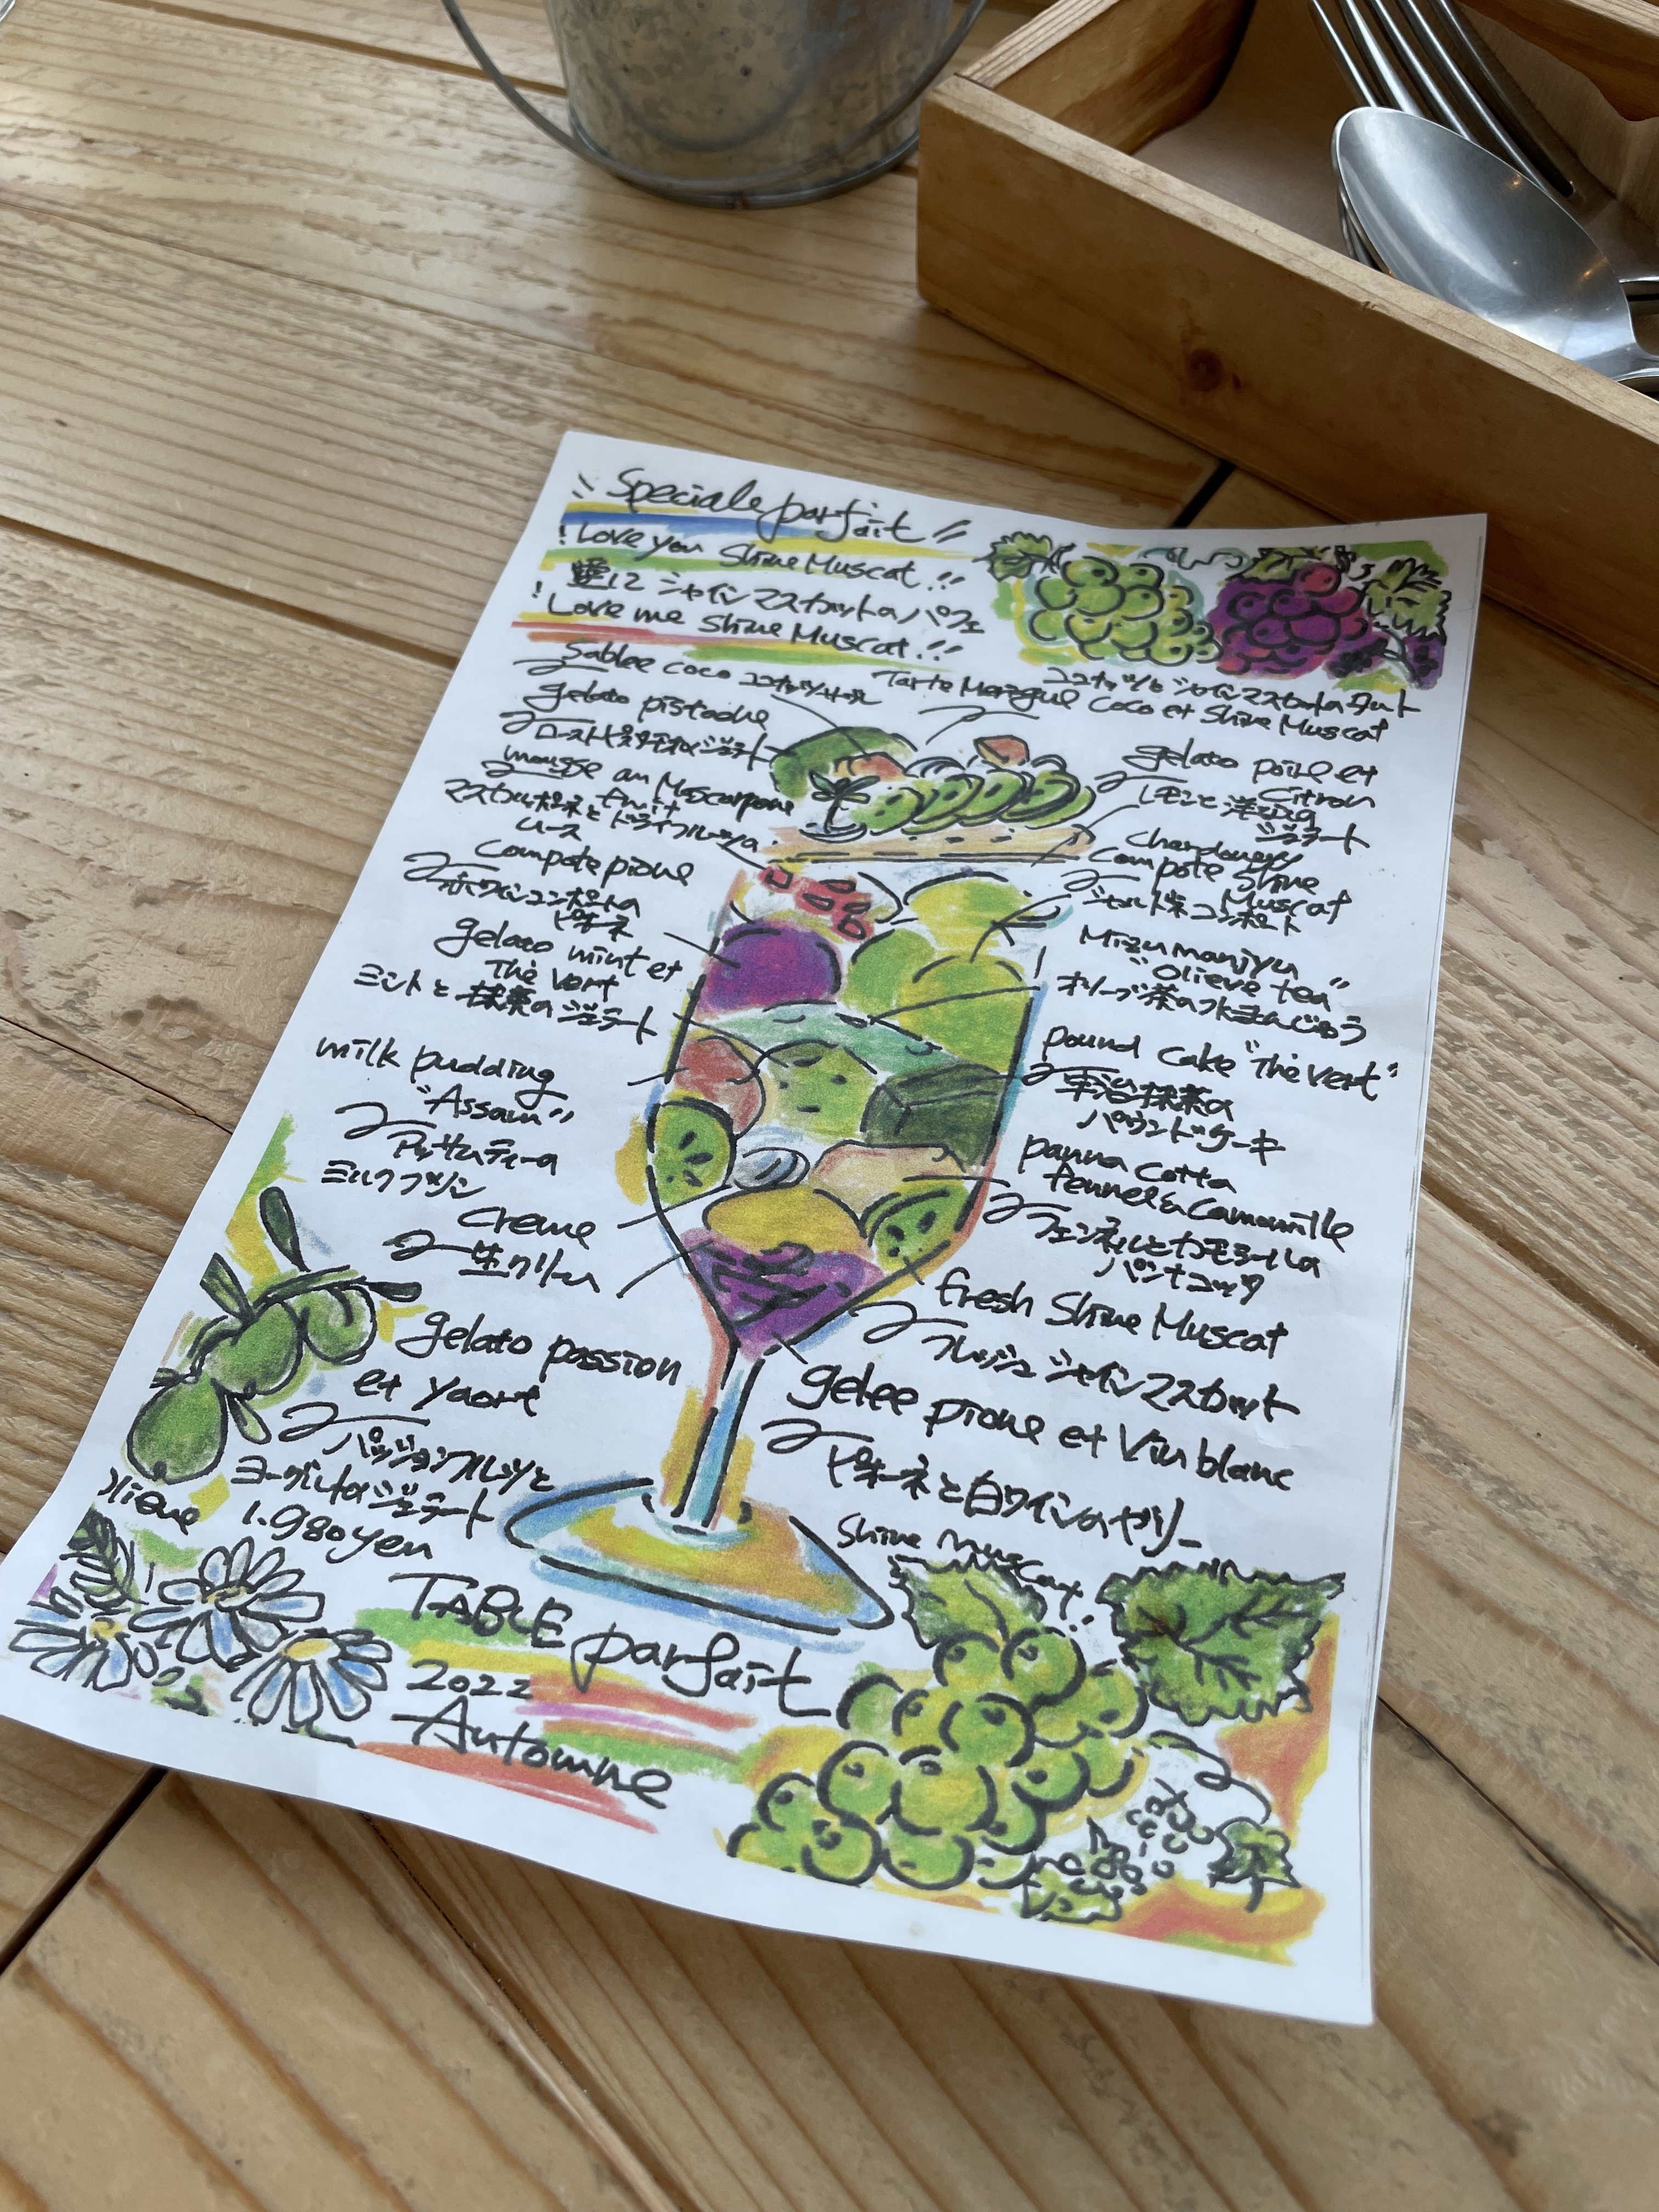 Speciale parfait
! Love you Shine Muscat !!
シャインマスカットのパフェ
! Love me Shine Muscat !!
Sablee coco ココナッツサブレ
gelato pistache
ローストピスタチオのジェラート
mousse au Mascarpone
fruit
マスカルポーネとドライフルーツの
ムース
Compote pione
赤ワインコンポートの
ピオーネ
gelato mint et
The Vert
ミントと抹茶のジェラート
milk pudding
"Assam"
アッサムティーの
ミルクプリン
Creme
生クリーム
gelato passion
et Yaort
パッションフルーツと
ヨーグルトのジェラート
1.980yen
ココナッツとシャインマスカットのタルト
Tarte Meringue Coco et Shine Muscat
gelato poire et
Citron
レモンと洋梨の
ジェラート
Chardonney
Compote Shine
Muscat
シャルドネコンポート
Mizu manjyu
"Olieve tea"
オリーブ茶の水まんじゅう
pound cake "The Vert"
宇治抹茶の
パウンドケーキ
panna cotta
fennel & Camomille
フェンネルとカモミールの
パンナコッタ
fresh Shine Muscat
フレッシュシャインマスカット
gelee pione et Vin blanc
ピオーネと白ワインのゼリー
Shine Muscat.
TABLE parfait
2022
Automne